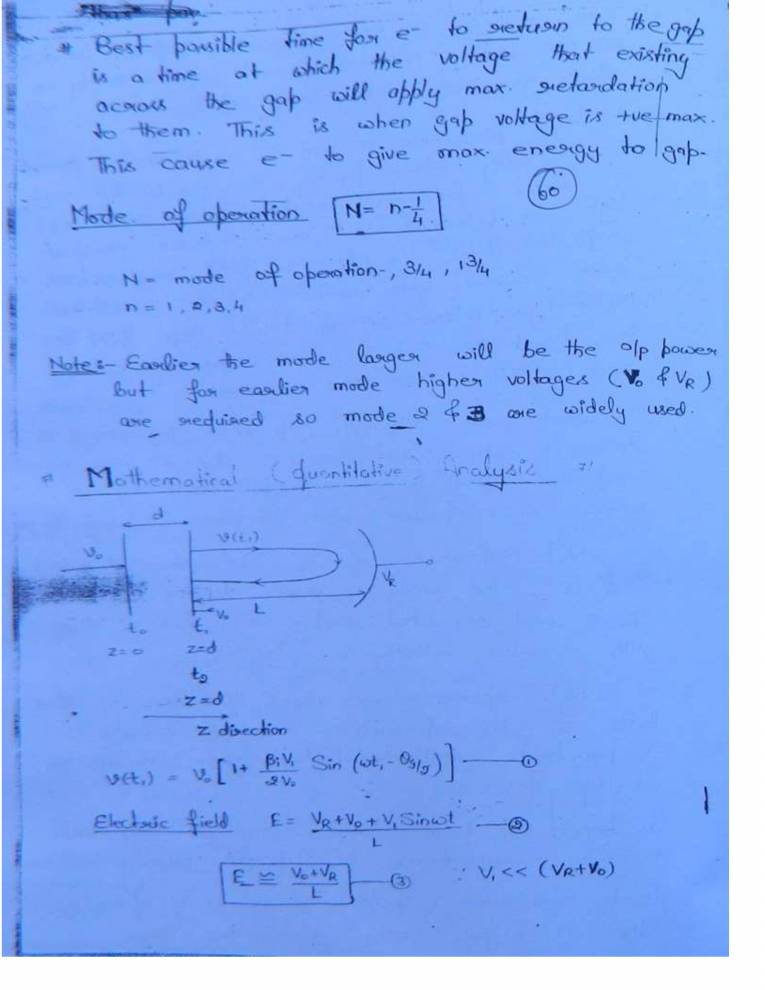 * Best possible time for e⁻ to return to the gap
is a time at which the voltage that existing
across the gap will apply max. retardation
to them. This is when gap voltage is +ve max.
This cause e⁻ to give max. energy to gap.
60
Mode of operation N = n-1/4
N = mode of operation-, 3/4, 1 3/4
n = 1, 2, 3, 4
Note:- Earlier the mode larger will be the o/p power
but for earlier mode higher voltages (V₀ & VR)
are required so mode 2 & 3 are widely used.
Mathematical (quantitative) Analysis
d
V₀ v(t₁)
VR
L
V₀
t₀ t₁
z=0 z=d
t₂
z=d
z direction
v(t₁) = v₀ [1 + βiV₁/2V₀ Sin (ωt₁ - θg/2)] —— ①
Electric field E = VR + V₀ + V₁ Sinωt / L —— ②
E ≅ V₀+VR / L —— ③ ∵ V₁ << (VR+V₀)